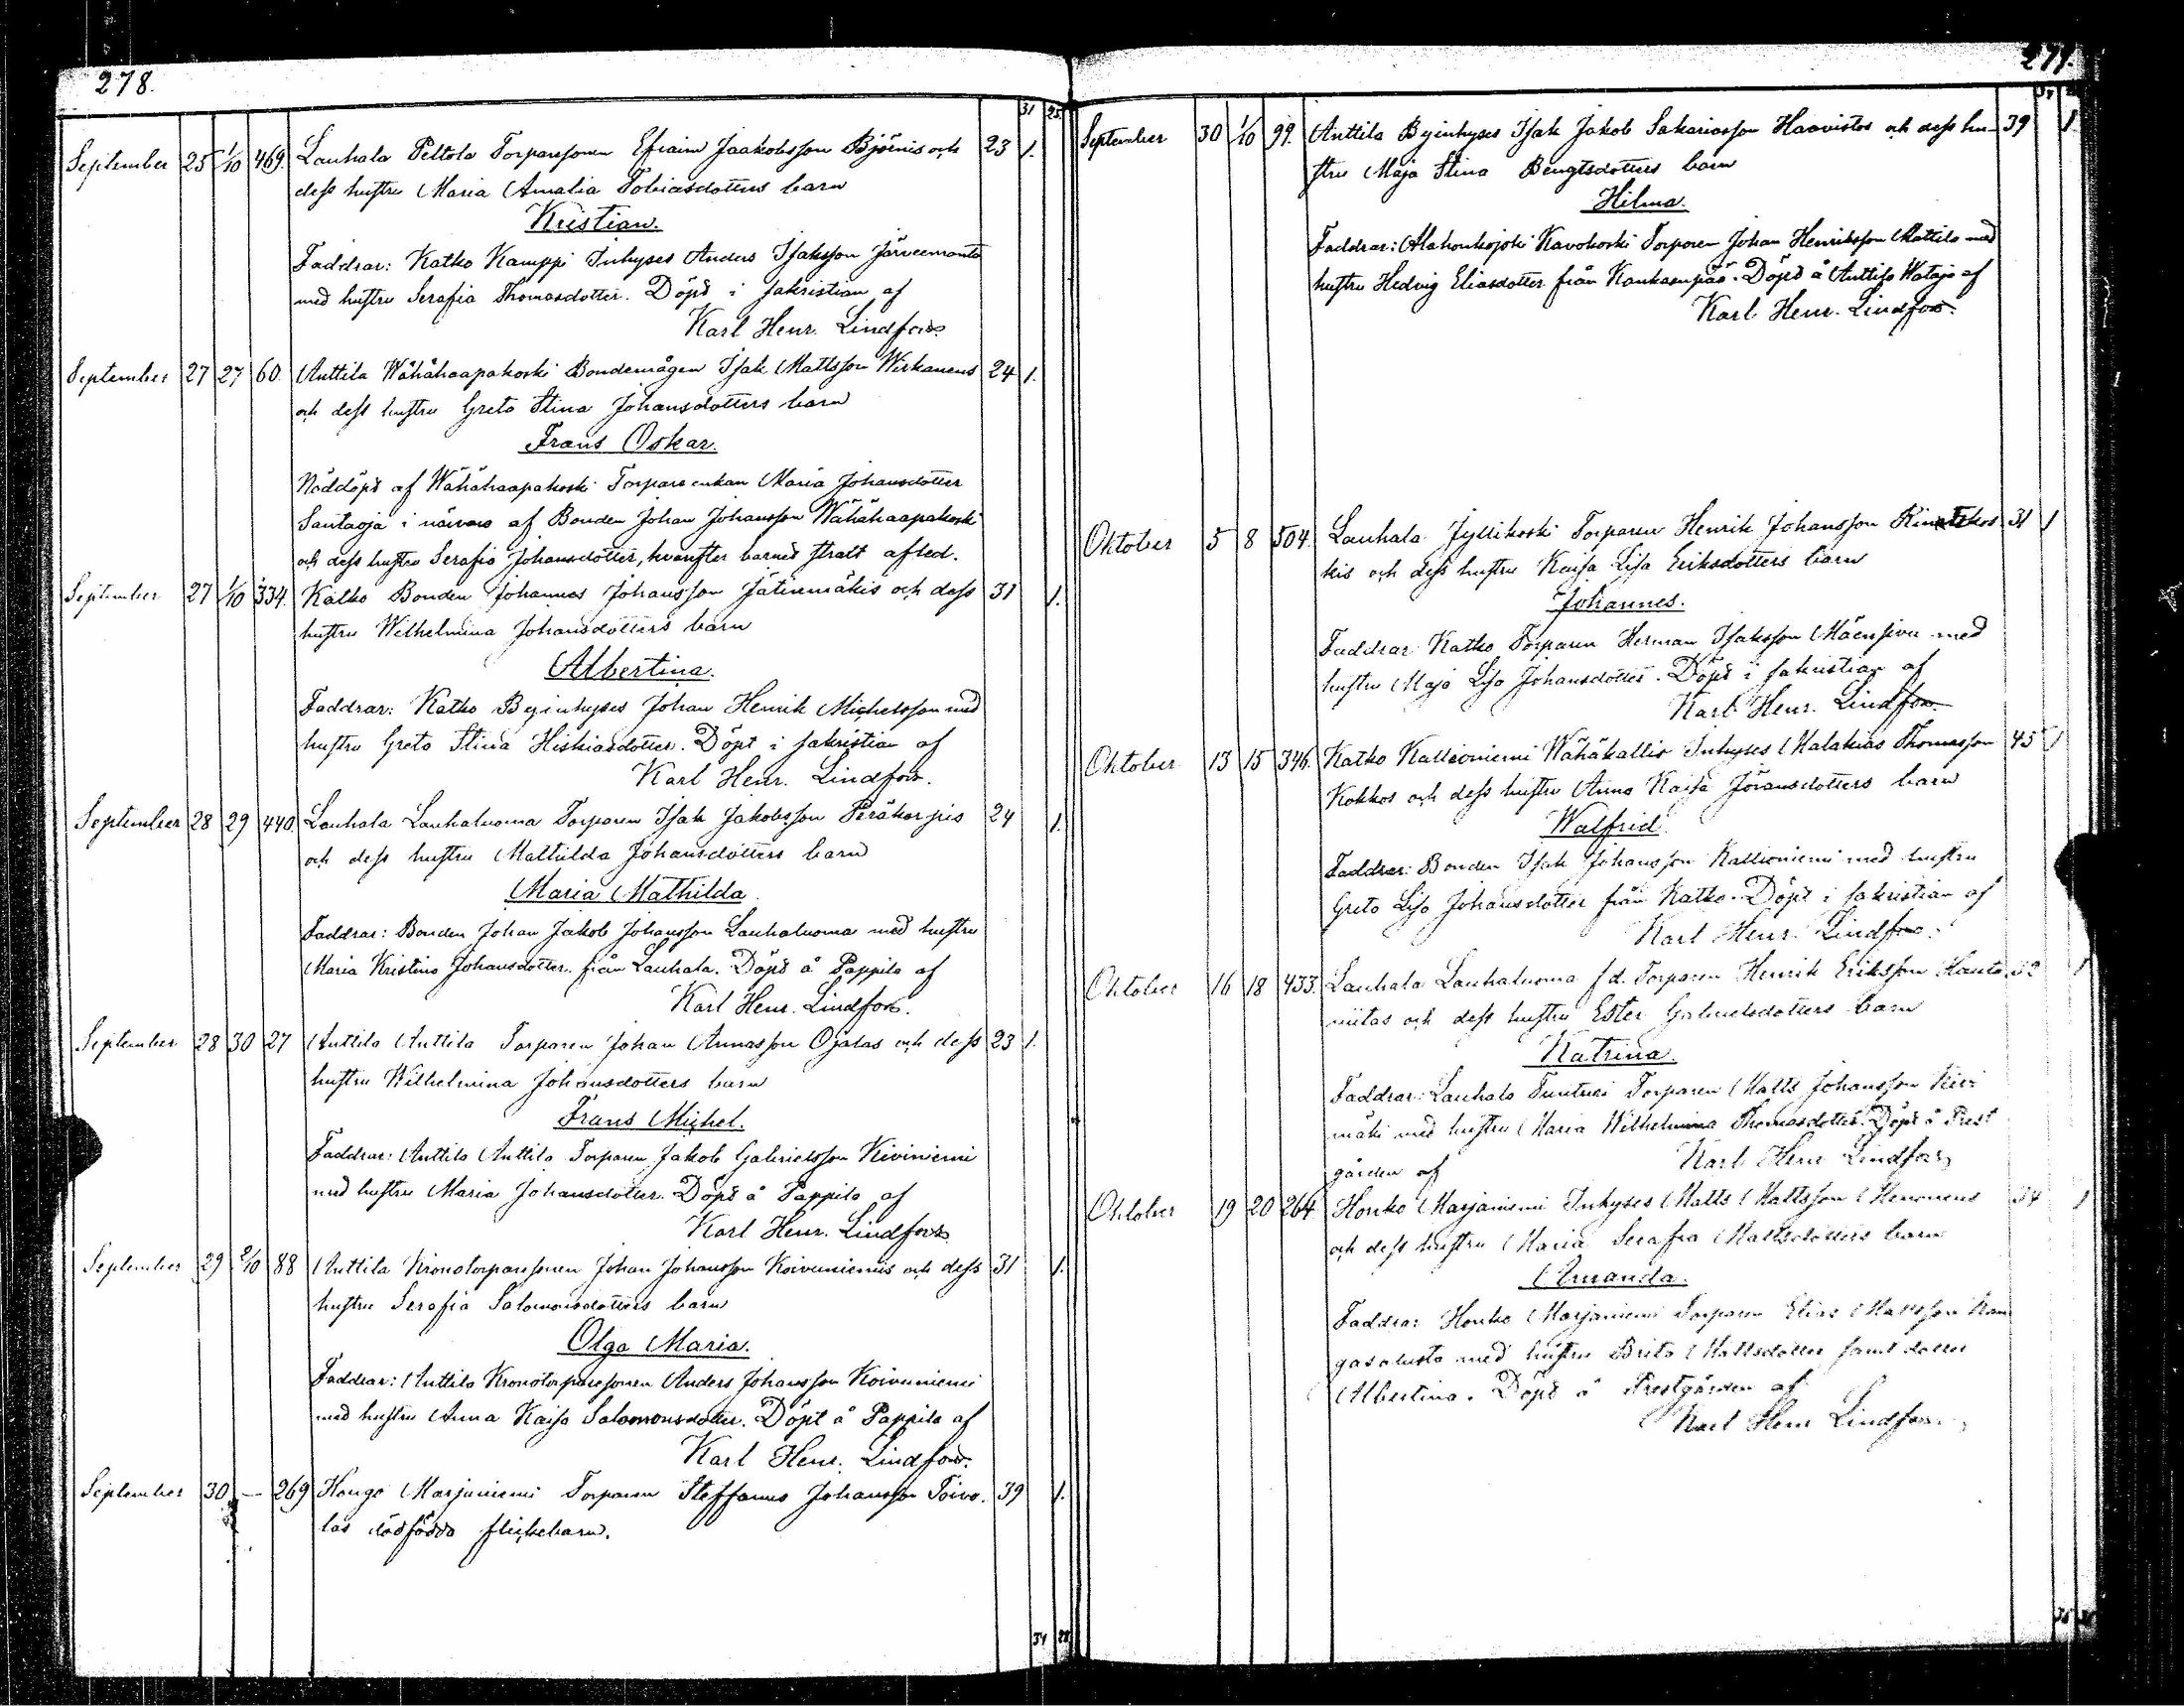 278.
31 25
September 25 1/10 469. Lauhala Peltola Torparesonen Efraim Jaakobsson Björnis och 23 1.
dess hustru Maria Amalia Tobiasdotters barn
Kristian.
Faddrar: Katko Kamppi Inhyses Anders Isaksson Järvenmonto
med hustru Serafia Thomasdotter. Döpt i sakristian af
Karl Henr. Lindfors
September 27 27 60. Anttila Wähähaapakoski Bondemågen Isak Mattsson Wirkanens 24 1.
och dess hustru Greta Stina Johansdotters barn
Frans Oskar.
Nöddöpt af Wähähaapakoski Torpare enkan Maria Johansdotter
Santaoja i närvaro af Bonden Johan Johansson Wähähaapakoski
och dess hustru Serafia Johansdotter, hvarefter barnet straxt afled.
September 27 1/10 334. Katko Bonden Johannes Johansson Jätinmäkis och dess 31 1.
hustru Wilhelmina Johansdotters barn
Albertina.
Faddrar: Katko Byinhyses Johan Henrik Michelsson med
hustru Greta Stina Hiskiasdotter. Döpt i sakristian af
Karl Henr. Lindfors.
September 28 29 440. Lauhala Lauhaluoma Torparen Isak Jakobsson Peräkorpis 24 1.
och dess hustru Mathilda Johansdotters barn
Maria Mathilda
Faddrar: Bonden Johan Jakob Johansson Lauhaluoma med hustru
Maria Kristina Johansdotter från Lauhala. Döpt å Pappila af
Karl Henr. Lindfors.
September 28 30 27 Anttila Anttila Torparen Johan Annasson Ojalas och dess 23 1.
hustru Wilhelmina Johansdotters barn
Frans Michel.
Faddrar: Anttila Anttila Torparen Jakob Gabrielsson Kiviniemi
med hustru Maria Johansdotter. Döpt å Pappila af
Karl Henr. Lindfors
September 29 2/10 88 Anttila Kronotorparesonen Johan Johansson Koivuniemis och dess 31 1.
hustru Serafia Salomonsdotters barn
Olga Maria.
Faddrar: Anttila Kronotorparesonen Anders Johansson Koivuniemi
med hustru Anna Kaisa Salomonsdotter. Döpt å Pappila af
Karl Henr. Lindfors.
September 30 — 269 Hongo Marjaniemi Torparen Steffanus Johansson Toivo- 39 1.
las dödfödda flickebarn.
34 28
September 30 1/10 99. Anttila Byinhyses Isak Jakob Sakariasson Haavistos och dess hu- 39 1
stru Maja Stina Bengtsdotters barn
Hilma.
Faddrar: Alahonkajoki Kavokoski Torparen Johan Henriksson Mattila med
hustru Hedvig Eliasdotter från Kankaanpää. Döpt å Anttila Wataja af
Karl Henr. Lindfors.
Oktober 5 8 504. Lauhala Jyllikoski Torparen Henrik Johansson 31 1
kis och dess hustru Kaisa Lisa Eriksdotters barn
Johannes.
Faddrar Katko Torparen Herman Isaksson Mäensivu med
hustru Maja Lisa Johansdotter. Döpt i sakristian af
Karl Henr. Lindfors.
Oktober 13 15 346. Katko Kallioniemi Wähäkallio Inhyses Malakias Thomasson 45 1
Kokkos och dess hustru Anna Kaisa Jöransdotters barn
Walfrid.
Faddrar: Bonden Isak Johansson Kallioniemi med hustru
Greta Lisa Johansdotter från Katko. Döpt i sakristian af
Karl Henr. Lindfors.
Oktober 16 18 433. Lauhala Lauhaluoma f d. Torparen Henrik Eriksson Hauta 32 1
niitas och dess hustru Ester Gabrielsdotters barn
Katrina.
Faddrar: Lauhala Tunturi Torparen Matts Johansson
mäki med hustru Maria Wilhelmina Thomasdotter. Döpt å Prest
gården af Karl Henr Lindfors
Oktober 19 20 264 Honko Marjaniemi Inhyses Matts Mattsson Menonens 34 1
och dess hustru Maria Serafia Mattsdotters barn
Amanda.
Faddrar: Honko Marjaniemi Torparen Elias Mattsson Kan
gasalusta med hustru Brita Mattsdotter samt dotter
Albertina. Döpt å Prestgården af
Karl Henr Lindfors.